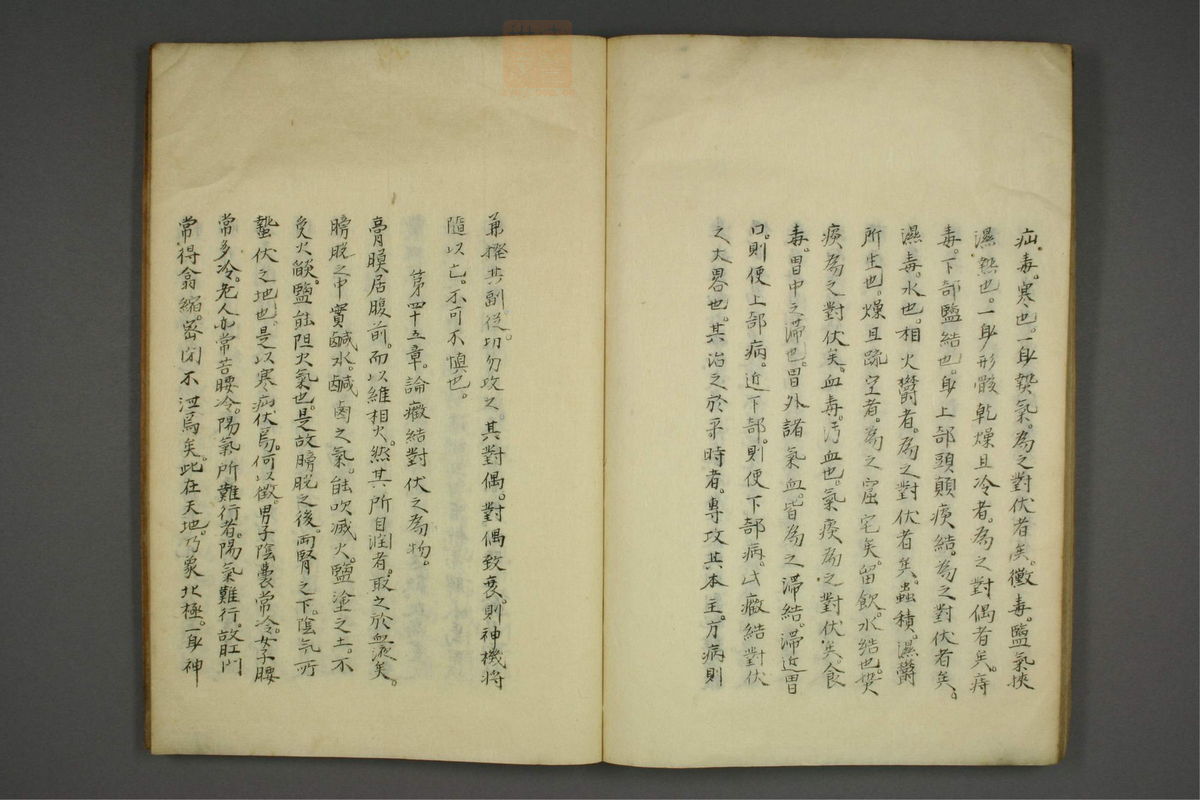 疝毒。寒也。一身熱氣。為之對伏者矣。黴毒。鹽氣挾
濕熱也。一身形骸乾燥且冷者。為之對偶者矣。痔
毒。下部鹽結也。身上部頭顛痰結。為之對伏者矣。
濕毒。水也。相火鬱者。為之對伏者矣。蟲積。濕鬱
所生也。燥且疏空者。為之窟宅矣。留飲。水結也。
痰為之對伏矣。血毒。汚血也。氣痰為之對伏矣。食
毒。胃中之滯也。胃外諸氣血。皆為之滯結。滯近胃
口。則便上部病。近下部。則便下部病。此癥結對伏
之大畧也。其治之於平時者。專攻其本主。方病則
弟撥其副從。切勿攻之。其對偶。對偶致衰。則神機將
隨以亡。不可不慎也。
第四十五章。論癥結對伏之為物。
膏膜居腹前。而以維相火。然其所自潤者。取之於血液矣。
膀胱之中實鹹水。鹹鹵之氣。能吹滅火。鹽塗之土。不
受火燄。鹽能阻火氣也。是故膀胱之後。兩腎之下。陰气所
蟄伏之地也。是以寒病伏焉。何以徵。男子陰囊常冷。女子腰
常多冷。老人亦常苦腰冷。陽氣所難行者。陽氣難行。故肛門
常得翕縮。密閉不泄焉矣。此在天地。乃象北極。一身神